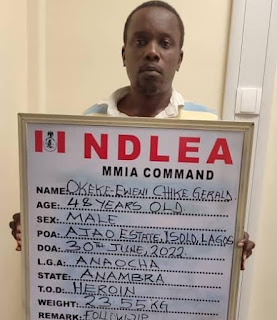 NDLEA
MMIA COMMAND
NAME: OKEKE-EWENI CHIKE GERALD
AGE: 48 YEARS OLD
SEX: MALE
POA: AJAO ESTATE, ISOLO, LAGOS
DOA: 30TH JUNE, 2022
L.G.A: ANAOCHA
STATE: ANAMBRA
T.O.D: HEROIN
WEIGHT: 23.55KG
REMARK: FOLLOWUP